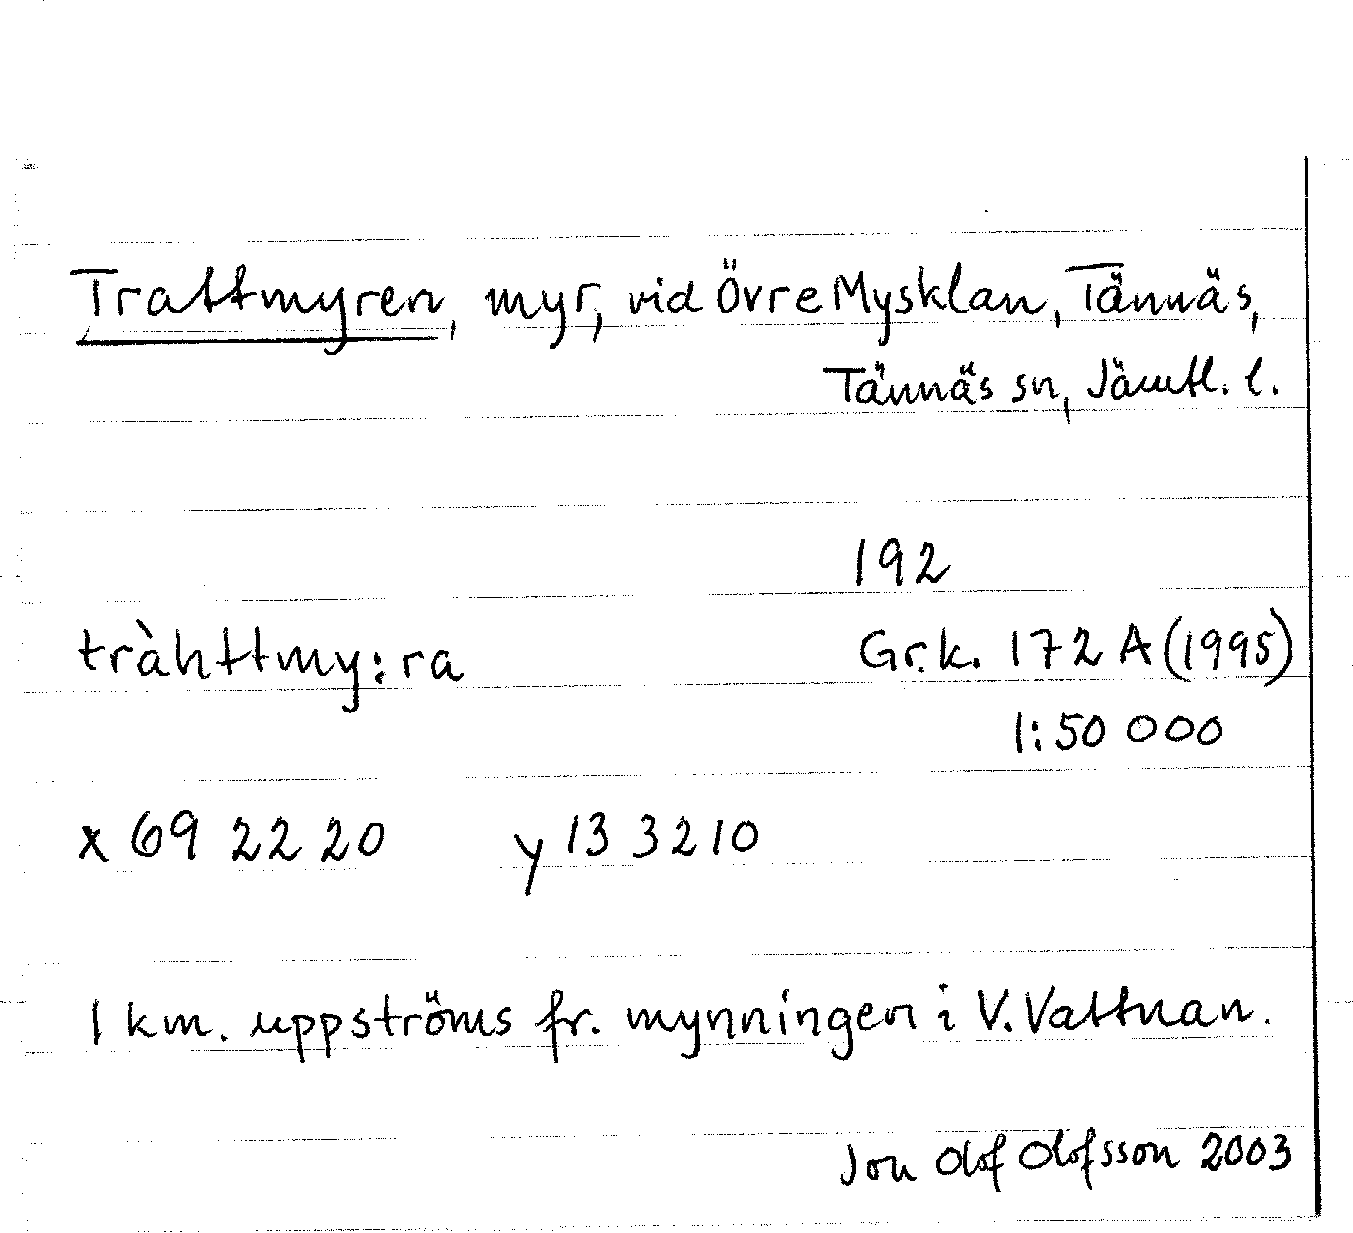 Trattmyren, myr, vid Övre Mysklan, Tännäs,
Tännäs sn, Jämtl. l.
192
tràhttmy:ra Gr.k. 172 A (1995)
1:50 000
x 69 22 20 y 13 3210
1 km. uppströms fr. mynningen i V. Vattnan.
Jon Olof Olofsson 2003